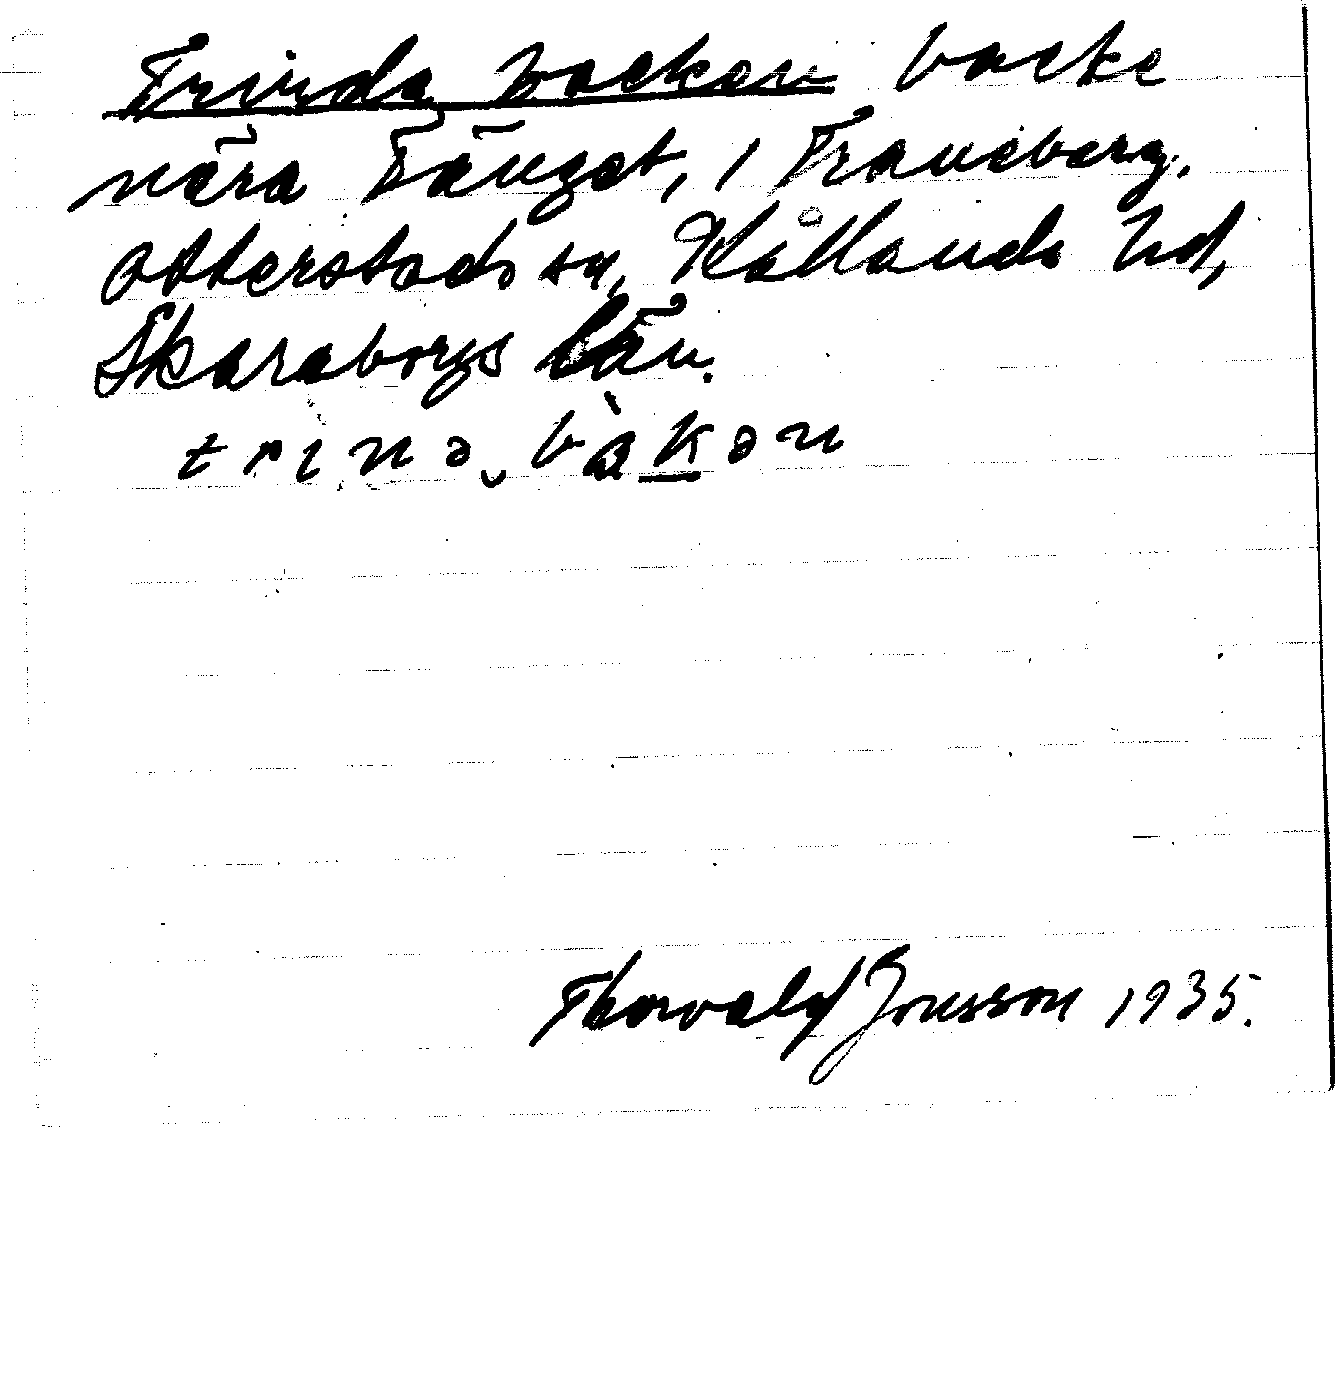 Trinda backen backe
nära Tånget, i Traneberg.
Otterstads sn, Kållands hd,
Skaraborgs län.
trinə ˬbàkən
Thorvald Jonsson 1935.